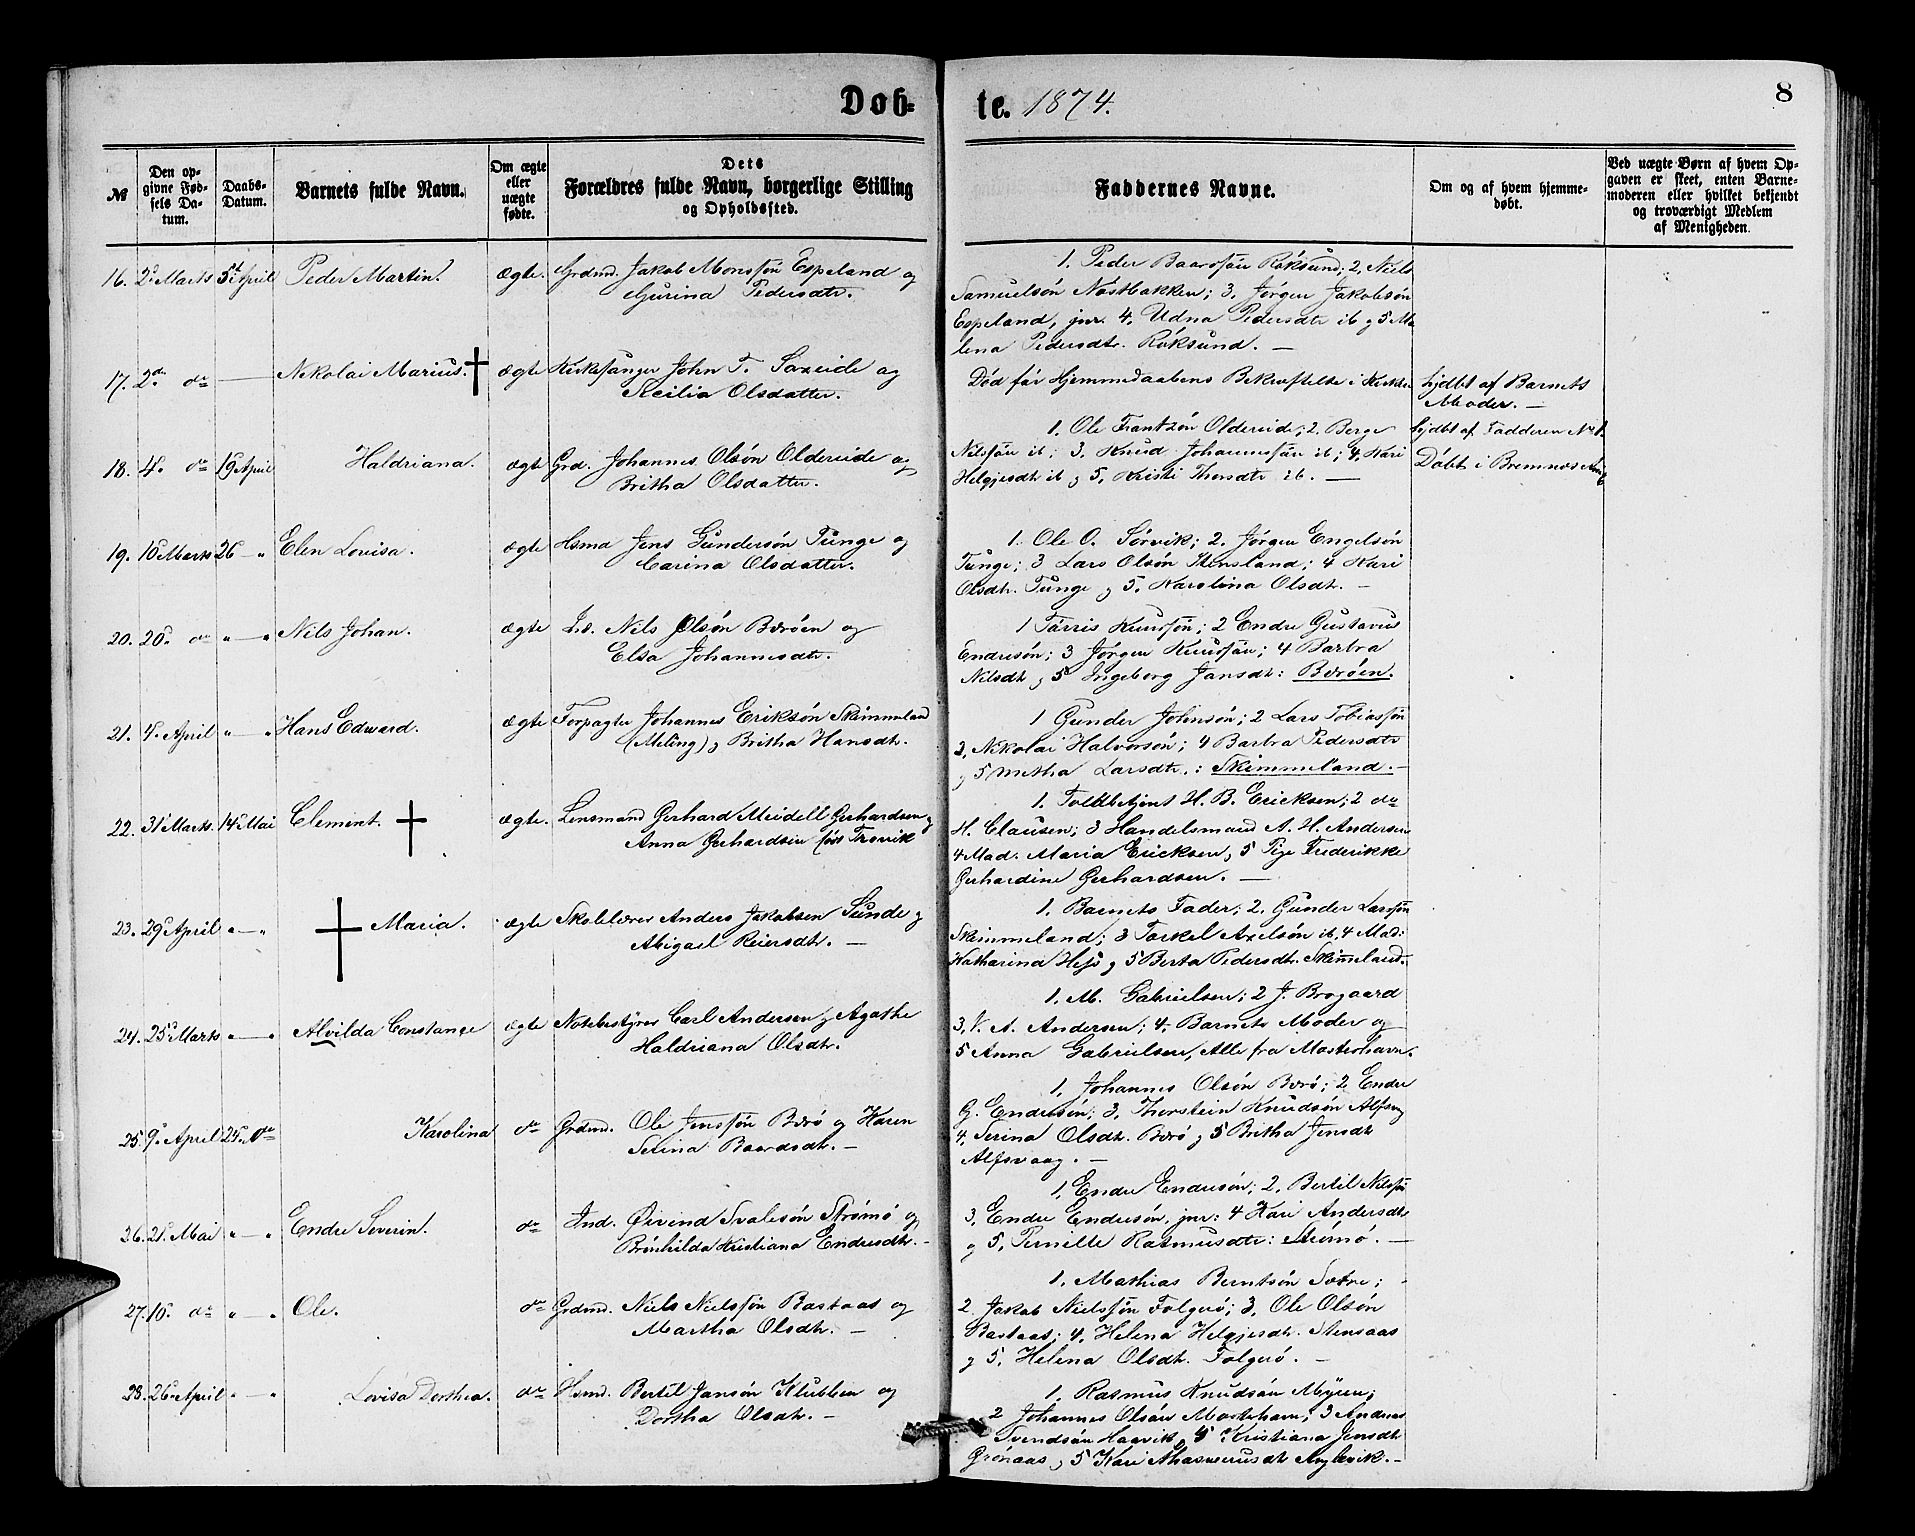 Døb-
te. 1874.
8
№
Den op-
givne Fød-
sels Da-
tum.
Daabs-
Datum.
Barnets fulde Navn.
Om ægte
eller
uægte
fødte.
Dets
Forældres fulde Navn, borgerlige Stilling
og Opholdssted.
Faddernes Navne.
Om og af hvem hjemme-
døbt.
Ved uægte Børn af hvem Op-
gaven er skeet, enten Barne-
moderen eller hvilket bekjendt
og troværdigt Medlem
af Menigheden.
16. 2d Marts 5t April Peder Martin. ægte. Grdmd. Jakob Monssøn Espeland og
Gurina Pedersdtr.
1. Peder Baardsøn Røksund; 2. Niels
Samuelsøn Nøstbakken; 3. Jørgen Jakobsøn
Espeland, jnr. 4. Udna Pedersdtr ib g 5 Ma
lena Pedersdtr. Røksund. —
17. 2d dr — Nikolai Marius. ægte Kirkesanger John T. Saxeide og
Secilia Olsdatter.
Død før Hjemmedaabens Bekræftelse i Kirken
hjdbt af Barnets
Moder. —
18. 4. dr 19 April Haldriana. ægte Grd. Johannes Olsøn Oldereide og
Britha Olsdatter.
1. Ole Frantzøn Oldereide; 2. Berge
Nilssøn ib; 3. Knud Johannessøn ib; 4. Kari
Helgjesdtr ib g 5. Kristi Thorsdtr ib. —
hjdbt af Fadderen No 1.
Døbt i Bremnes
19. 10 Marts 26 — " Elen Lovisa. ægte Hsmd Jens Gundersøn Tunge og
Carina Olsdatter.
1. Ole O. Sørvik; 2. Jørgen Engelsøn
Tunge; 3 Lars Olsøn Stensland; 4 Kari
Olsdtr. Tunge g 5. Karolina Olsdtr. —
20. 20. dr " — " Nils Johan. ægte Nils Olsøn Bærøen og
Elsa Johannesdtr.
1 Tørris Knudsøn; 2 Endre Gustavus
Endresøn; 3 Jørgen Knudsøn; 4 Barbra
Nilsdtr g 5 Ingeborg Jansdtr: Bærøen.
21. 4. April " — " Hans Edward. ægte Forpagter Johannes Eriksøn Skimmeland
(Meling) g Britha Hansdtr.
1 Gunder Johnsøn; 2 Lars Tobiassøn
3. Nikolai Halvorsøn; 4 Barbra Pedersdtr
g 5 Metha Larsdtr.: Skimmeland. —
22. 31 Marts. 14 Mai Clement. ægte. Lensmand Gerhard Meidell Gerhardsen g
Anna Gerhardsen født Trovik
1. Toldbetjent H. B. Ericksen; 2 dr
H. Clausen; 3 Handelsmand A. H. Andersen
4 Mad. Maria Ericksen g 5 Pige Frederikke
Gerhardine Gerhardsen. —
23. 29 April " — " Maria. ægte Skolelærer Anders Jakobsen Sunde g
Abigael Reiersdtr. —
1. Barnets Fader; 2. Gunder Larssøn
Skimmeland; 3 Torkel Axelsøn ib, 4 Mad:
Katharina g 5 Berta Pedersdtr. Skimmeland.
24. 25 Marts " — " Alvilda Constance ægte Notebestyrer Carl Andersen g Agathe
Haldriana Olsdtr.
1. M. Gabrielsen; 2 J. Brogaard
3. V. A. Andersen; 4. Barnets Moder og
5 Anna Gabrielsen, Alle fra Mosterhavn.
25. 9 April 25. dr Karolina dr Grdmd. Ole Jenssøn Bærø og Karen
Serina Baardsdtr. —
1. Johannes Olsøn Bærø; 2 Endre
G. Endresøn; 3. Thorstein Knudsøn Alfsvg
4. Serina Olsdtr. Bærø g 5 Britha Jensdtr
Alfsvaag. —
26. 21. Mai " — " Endre Severin. dr Ind. Øivind Svalesøn Strømø og
Brynhilda Kristiana Endresdtr. —
1. Endre Endresøn; 2. Bertil Nilssøn
3. Endre Endresøn, jnr: 4 Kari Andersdtr
g 5. Pernille Rasmusdtr: Strømø. —
27. 10. dr " — " Ole. dr Grdmd. Niels Nielssøn Bastaas og
Martha Olsdtr. —
1. Mathias Berntsøn Sætre;
2. Jakob Nielssøn Folgerø; 3. Ole Olsøn
Bastaas; 4. Helena Helgjesdtr. Stensaas
g 5. Helena Olsdtr. Folgerø. —
28. 26 April " — " Lovisa Dorthea. dr Hsmd. Bertil Jansøn Klubben og
Dortha Olsdtr. —
1. Rasmus Knudsøn Myren;
2 Johannes Olsøn Mosterhavn; 3 Andreas
Svendsøn Haavik g 4 Kristiana Jensdtr
Grønaas g 5 Kari Ahasverusdtr Anglevik. —